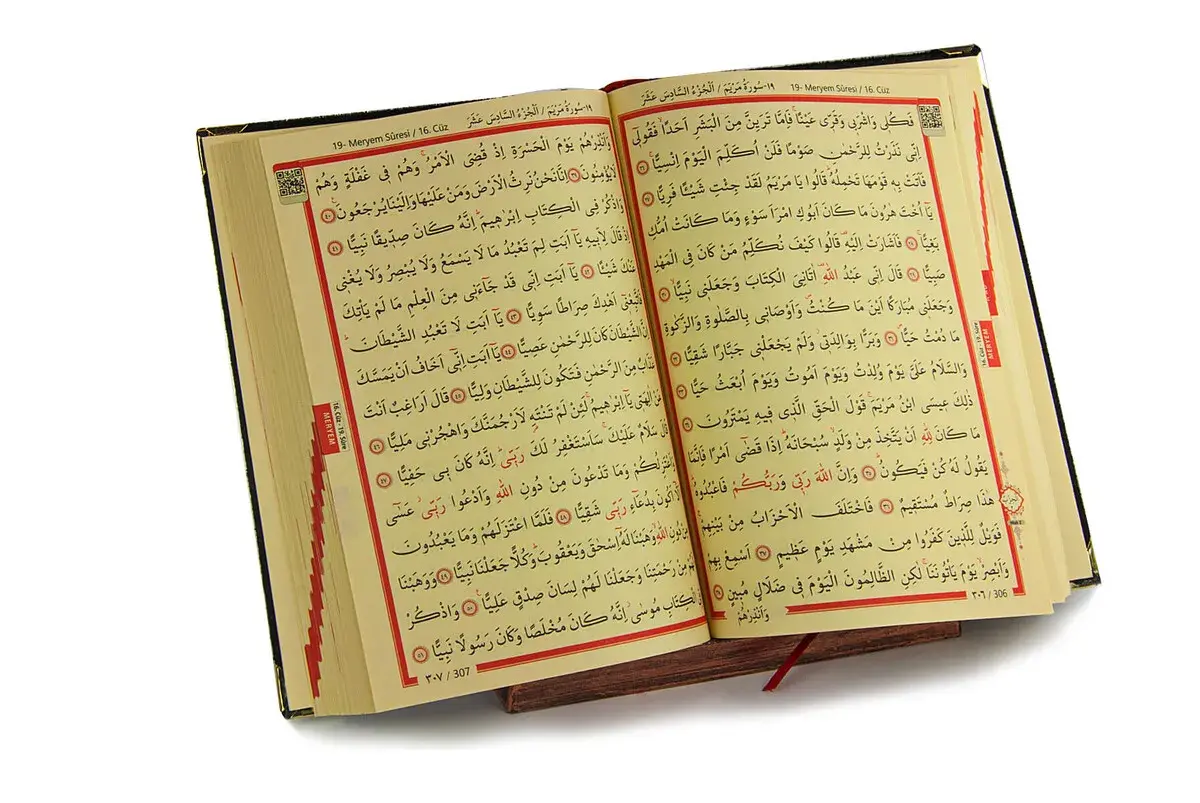 ١٩-سُورَةُ مَرْيَمَ / اَلْجُزْءُ السَّادِسَ عَشَرَ
19- Meryem Sûresi / 16. Cüz
فَكُلٖى وَاشْرَبٖى وَقَرّٖى عَيْنًاۚ فَاِمَّا تَرَيِنَّ مِنَ الْبَشَرِ اَحَدًاۙ فَقُولٖٓى
اِنّٖى نَذَرْتُ لِلرَّحْمٰنِ صَوْمًا فَلَنْ اُكَلِّمَ الْيَوْمَ اِنْسِيًّاۚ ٢٦
فَاَتَتْ بِهٖ قَوْمَهَا تَحْمِلُهُۜ قَالُوا يَا مَرْيَمُ لَقَدْ جِئْتِ شَيْـًٔا فَرِيًّا ٢٧
يَٓا اُخْتَ هٰرُونَ مَا كَانَ اَبُوكِ امْرَاَ سَوْءٍ وَمَا كَانَتْ اُمُّكِ
بَغِيًّاۚ ٢٨ فَاَشَارَتْ اِلَيْهِۜ قَالُوا كَيْفَ نُكَلِّمُ مَنْ كَانَ فِى الْمَهْدِ
صَبِيًّا ٢٩ قَالَ اِنّٖى عَبْدُ اللّٰهِۜ اٰتَانِىَ الْكِتَابَ وَجَعَلَنٖى نَبِيًّاۙ ٣٠
وَجَعَلَنٖى مُبَارَكًا اَيْنَ مَا كُنْتُۖ وَاَوْصَانٖى بِالصَّلٰوةِ وَالزَّكٰوةِ
مَا دُمْتُ حَيًّاۖ ٣١ وَبَرًّا بِوَالِدَتٖىۘ وَلَمْ يَجْعَلْنٖى جَبَّارًا شَقِيًّا ٣٢
وَالسَّلَامُ عَلَىَّ يَوْمَ وُلِدْتُ وَيَوْمَ اَمُوتُ وَيَوْمَ اُبْعَثُ حَيًّا ٣٣
ذٰلِكَ عٖيسَى ابْنُ مَرْيَمَۚ قَوْلَ الْحَقِّ الَّذٖى فٖيهِ يَمْتَرُونَ ٣٤
مَا كَانَ لِلّٰهِ اَنْ يَتَّخِذَ مِنْ وَلَدٍۙ سُبْحَانَهُۜ اِذَا قَضٰٓى اَمْرًا فَاِنَّمَا
يَقُولُ لَهُ كُنْ فَيَكُونُۜ ٣٥ وَاِنَّ اللّٰهَ رَبّٖى وَرَبُّكُمْ فَاعْبُدُوهُۜ
هٰذَا صِرَاطٌ مُسْتَقٖيمٌ ٣٦ فَاخْتَلَفَ الْاَحْزَابُ مِنْ بَيْنِهِمْۚ
فَوَيْلٌ لِلَّذٖينَ كَفَرُوا مِنْ مَشْهَدِ يَوْمٍ عَظٖيمٍ ٣٧ اَسْمِعْ بِهِمْ
وَاَبْصِرْۙ يَوْمَ يَأْتُونَنَا لٰكِنِ الظَّالِمُونَ الْيَوْمَ فٖى ضَلَالٍ مُبٖينٍ ٣٨
وَاَنْذِرْهُمْ
٣٠٦ / 306
16. Cüz - 19. Sûre
MERYEM
١٩-سُورَةُ مَرْيَمَ / اَلْجُزْءُ السَّادِسَ عَشَرَ
19- Meryem Sûresi / 16. Cüz
وَاَنْذِرْهُمْ يَوْمَ الْحَسْرَةِ اِذْ قُضِىَ الْاَمْرُۘ وَهُمْ فٖى غَفْلَةٍ وَهُمْ
لَا يُؤْمِنُونَ ٣٩ اِنَّا نَحْنُ نَرِثُ الْاَرْضَ وَمَنْ عَلَيْهَا وَاِلَيْنَا يُرْجَعُونَ ٤٠
وَاذْكُرْ فِى الْكِتَابِ اِبْرٰهٖيمَۜ اِنَّهُ كَانَ صِدّٖيقًا نَبِيًّا ٤١
اِذْ قَالَ لِاَبٖيهِ يَٓا اَبَتِ لِمَ تَعْبُدُ مَا لَا يَسْمَعُ وَلَا يُبْصِرُ وَلَا يُغْنٖى
عَنْكَ شَيْـًٔا ٤٢ يَٓا اَبَتِ اِنّٖى قَدْ جَٓاءَنٖى مِنَ الْعِلْمِ مَا لَمْ يَأْتِكَ
فَاتَّبِعْنٖٓى اَهْدِكَ صِرَاطًا سَوِيًّا ٤٣ يَٓا اَبَتِ لَا تَعْبُدِ الشَّيْطَانَۜ
الشَّيْطَانَ كَانَ لِلرَّحْمٰنِ عَصِيًّا ٤٤ يَٓا اَبَتِ اِنّٖٓى اَخَافُ اَنْ يَمَسَّكَ
عَذَابٌ مِنَ الرَّحْمٰنِ فَتَكُونَ لِلشَّيْطَانِ وَلِيًّا ٤٥ قَالَ اَرَاغِبٌ اَنْتَ
عَنْ اٰلِهَتٖى يَٓا اِبْرٰهٖيمُۚ لَئِنْ لَمْ تَنْتَهِ لَاَرْجُمَنَّكَ وَاهْجُرْنٖى مَلِيًّا ٤٦
قَالَ سَلَامٌ عَلَيْكَۚ سَاَسْتَغْفِرُ لَكَ رَبّٖىۜ اِنَّهُ كَانَ بٖى حَفِيًّا ٤٧
وَاَعْتَزِلُكُمْ وَمَا تَدْعُونَ مِنْ دُونِ اللّٰهِ وَاَدْعُوا رَبّٖىۘ عَسٰٓى
اَلَّٓا اَكُونَ بِدُعَٓاءِ رَبّٖى شَقِيًّا ٤٨ فَلَمَّا اعْتَزَلَهُمْ وَمَا يَعْبُدُونَ
مِنْ دُونِ اللّٰهِۙ وَهَبْنَا لَهُٓ اِسْحٰقَ وَيَعْقُوبَۜ وَكُلًّا جَعَلْنَا نَبِيًّا ٤٩ وَوَهَبْنَا
لَهُمْ مِنْ رَحْمَتِنَا وَجَعَلْنَا لَهُمْ لِسَانَ صِدْقٍ عَلِيًّا ٥٠ وَاذْكُرْ
الْكِتَابِ مُوسٰىۘ اِنَّهُ كَانَ مُخْلَصًا وَكَانَ رَسُولًا نَبِيًّا ٥١
٣٠٧ / 307
16. Cüz - 19. Sûre
MERYEM